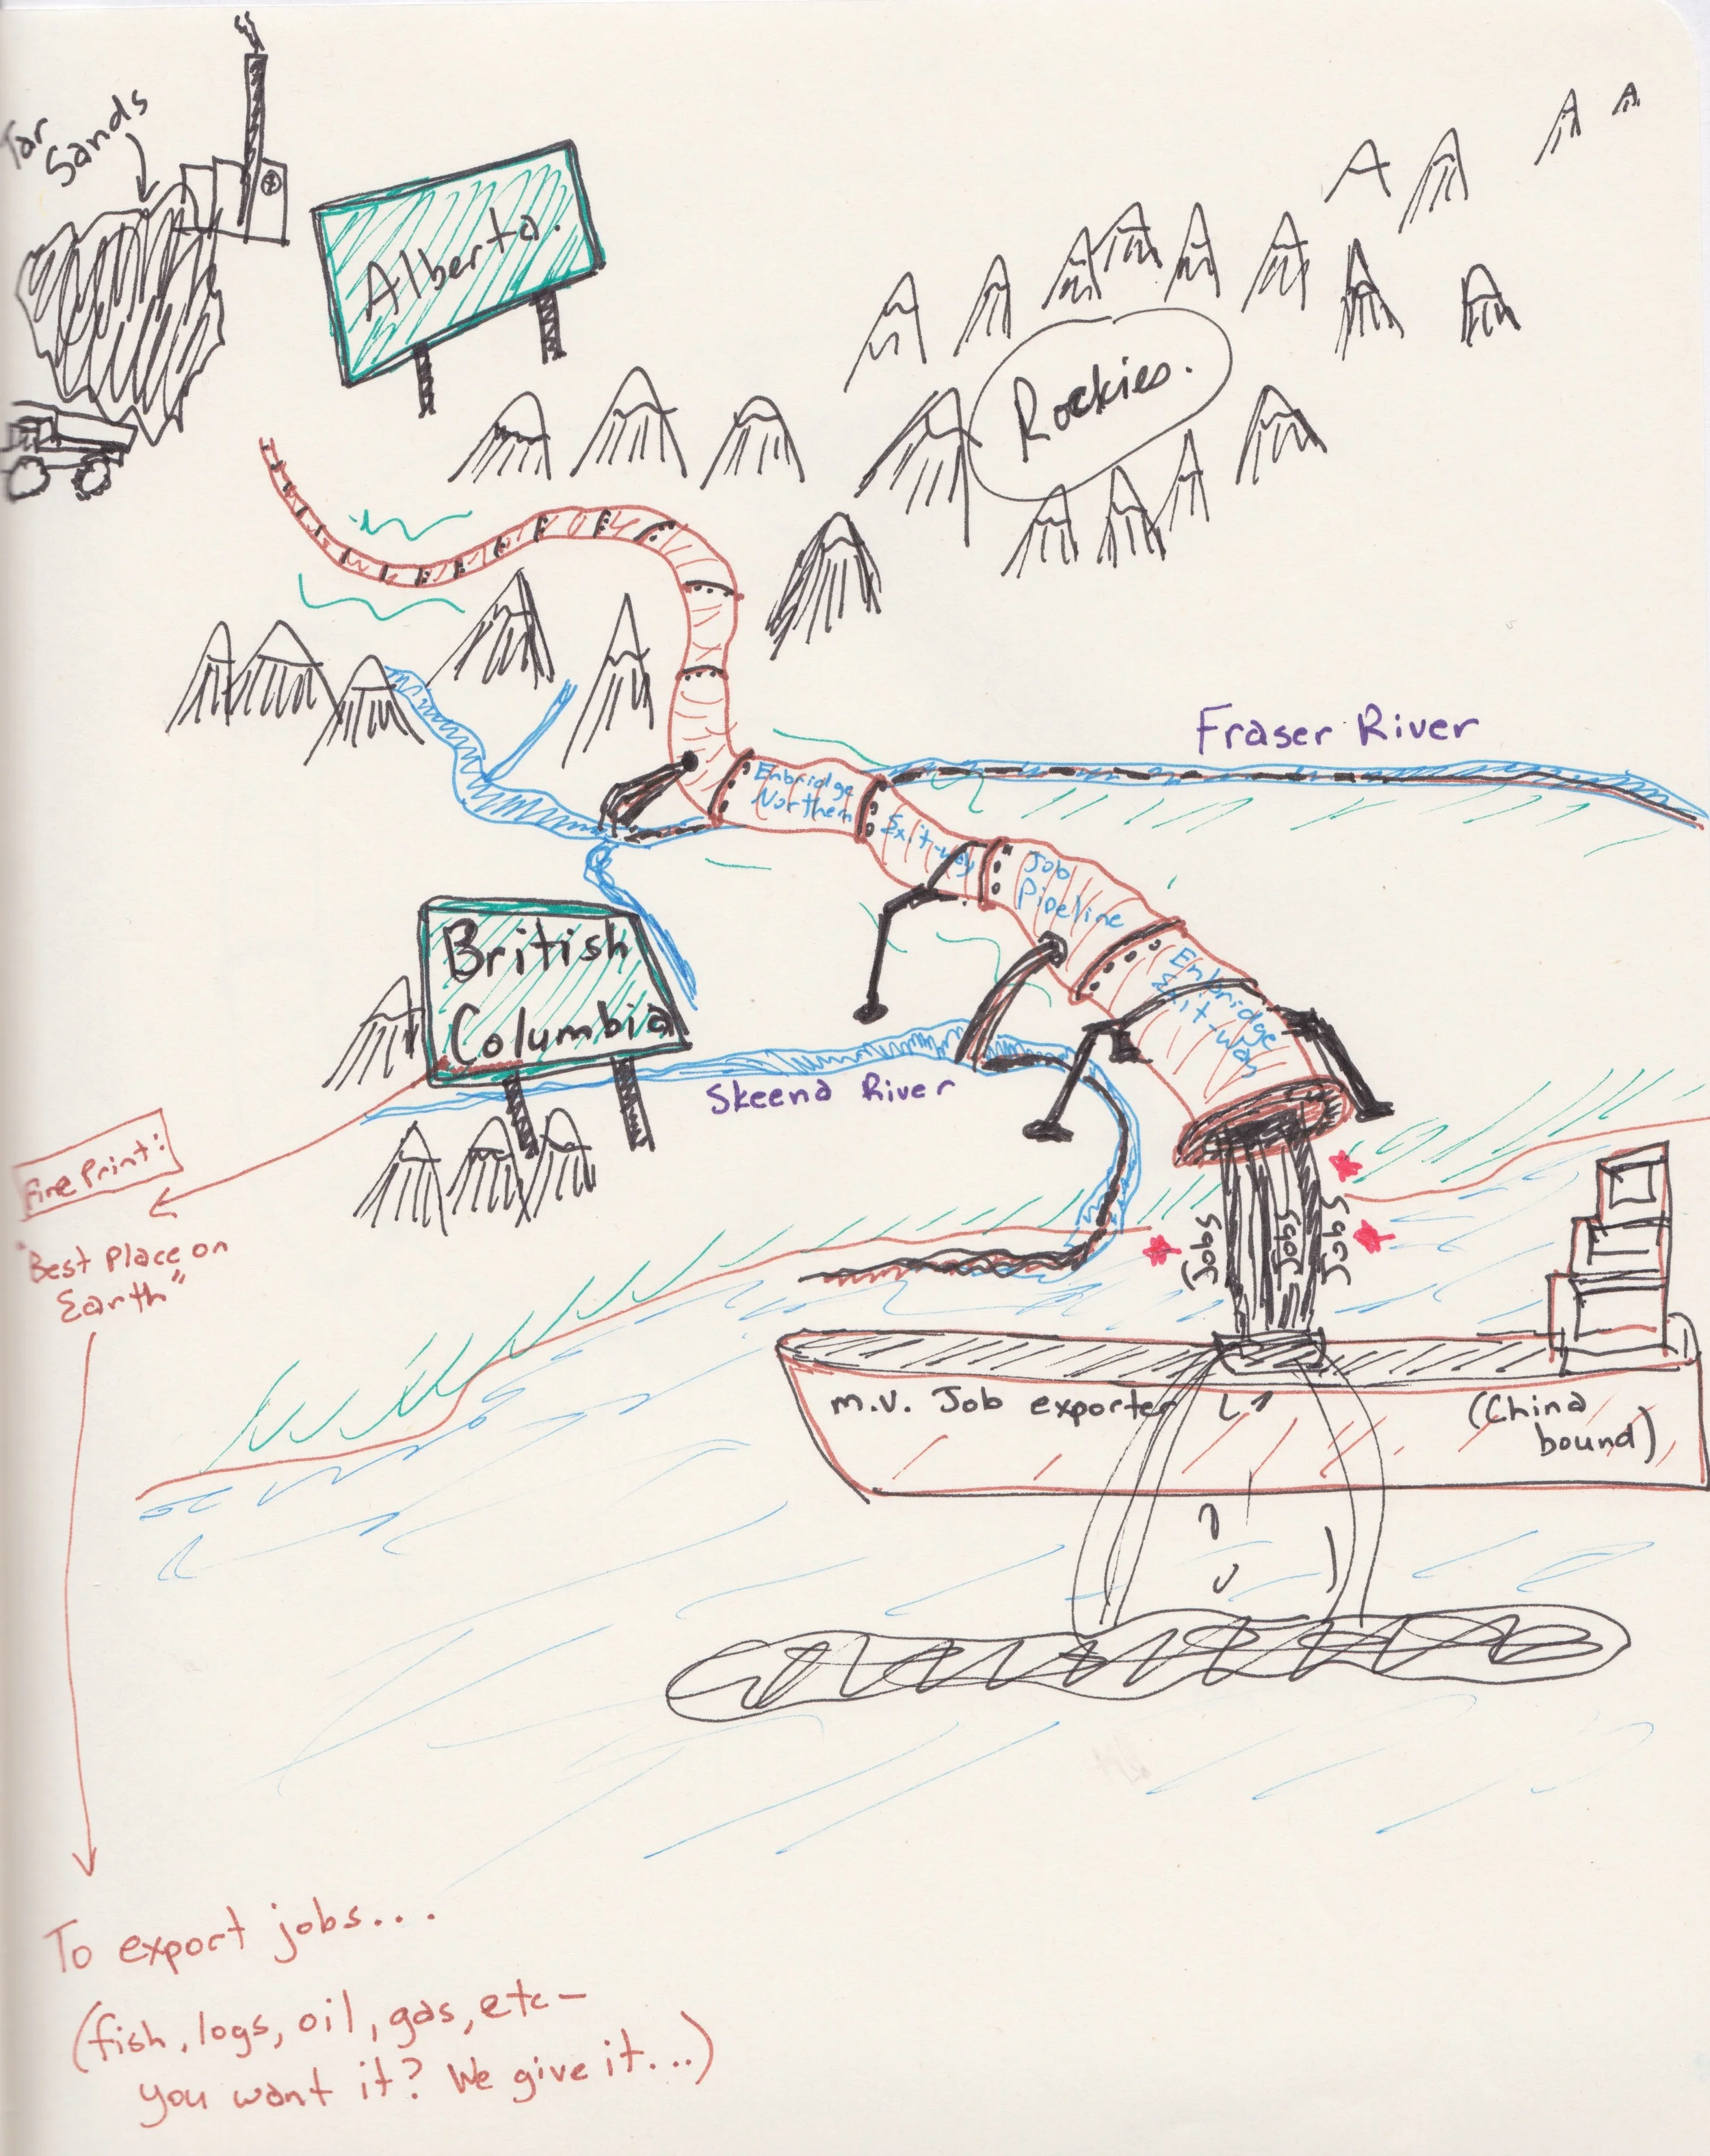 Tar
Sands
Alberta.
Rockies.
Fraser River
Enbridge
Northern
Exit-way
Job
Pipeline
Enbridge
Exit-way
British
Columbia
Skeena River
Fine Print:
"Best Place on
Earth"
Jobs
Jobs
Jobs
m.v. Job exporter
(China
bound)
To export jobs...
(fish, logs, oil, gas, etc-
you want it? We give it...)